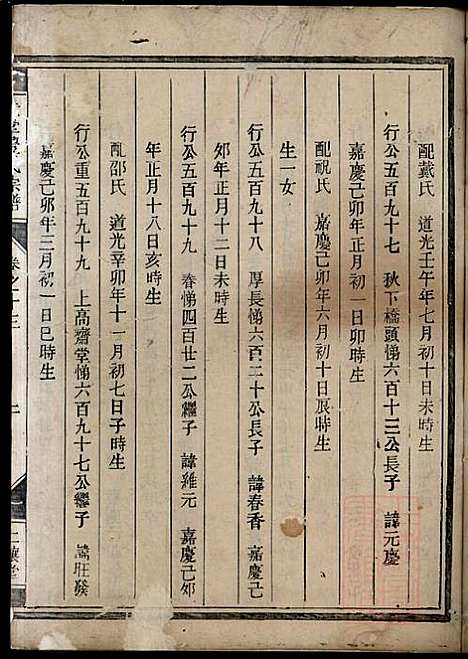 配戴氏　道光壬午年七月初十日未時生
行公五百九十七　秋下橋頭悌六百十三公長子　諱元慶
嘉慶己卯年正月初一日卯時生
配祝氏　嘉慶己卯年六月初十日辰時生
生一女
行公五百九十八　厚長悌六百二十公長子　諱春香　嘉慶己
卯年正月十二日未時生
行公五百九十九　春悌四百廿二公繼子　諱維元　嘉慶己卯
年正月十八日亥時生
配邵氏　道光辛卯年十一月初七日子時生
行公重五百九十九　上高齋堂悌六百九十七公繼子　諱旺發
嘉慶己卯年三月初一日巳時生
氏宗譜　卷之十三